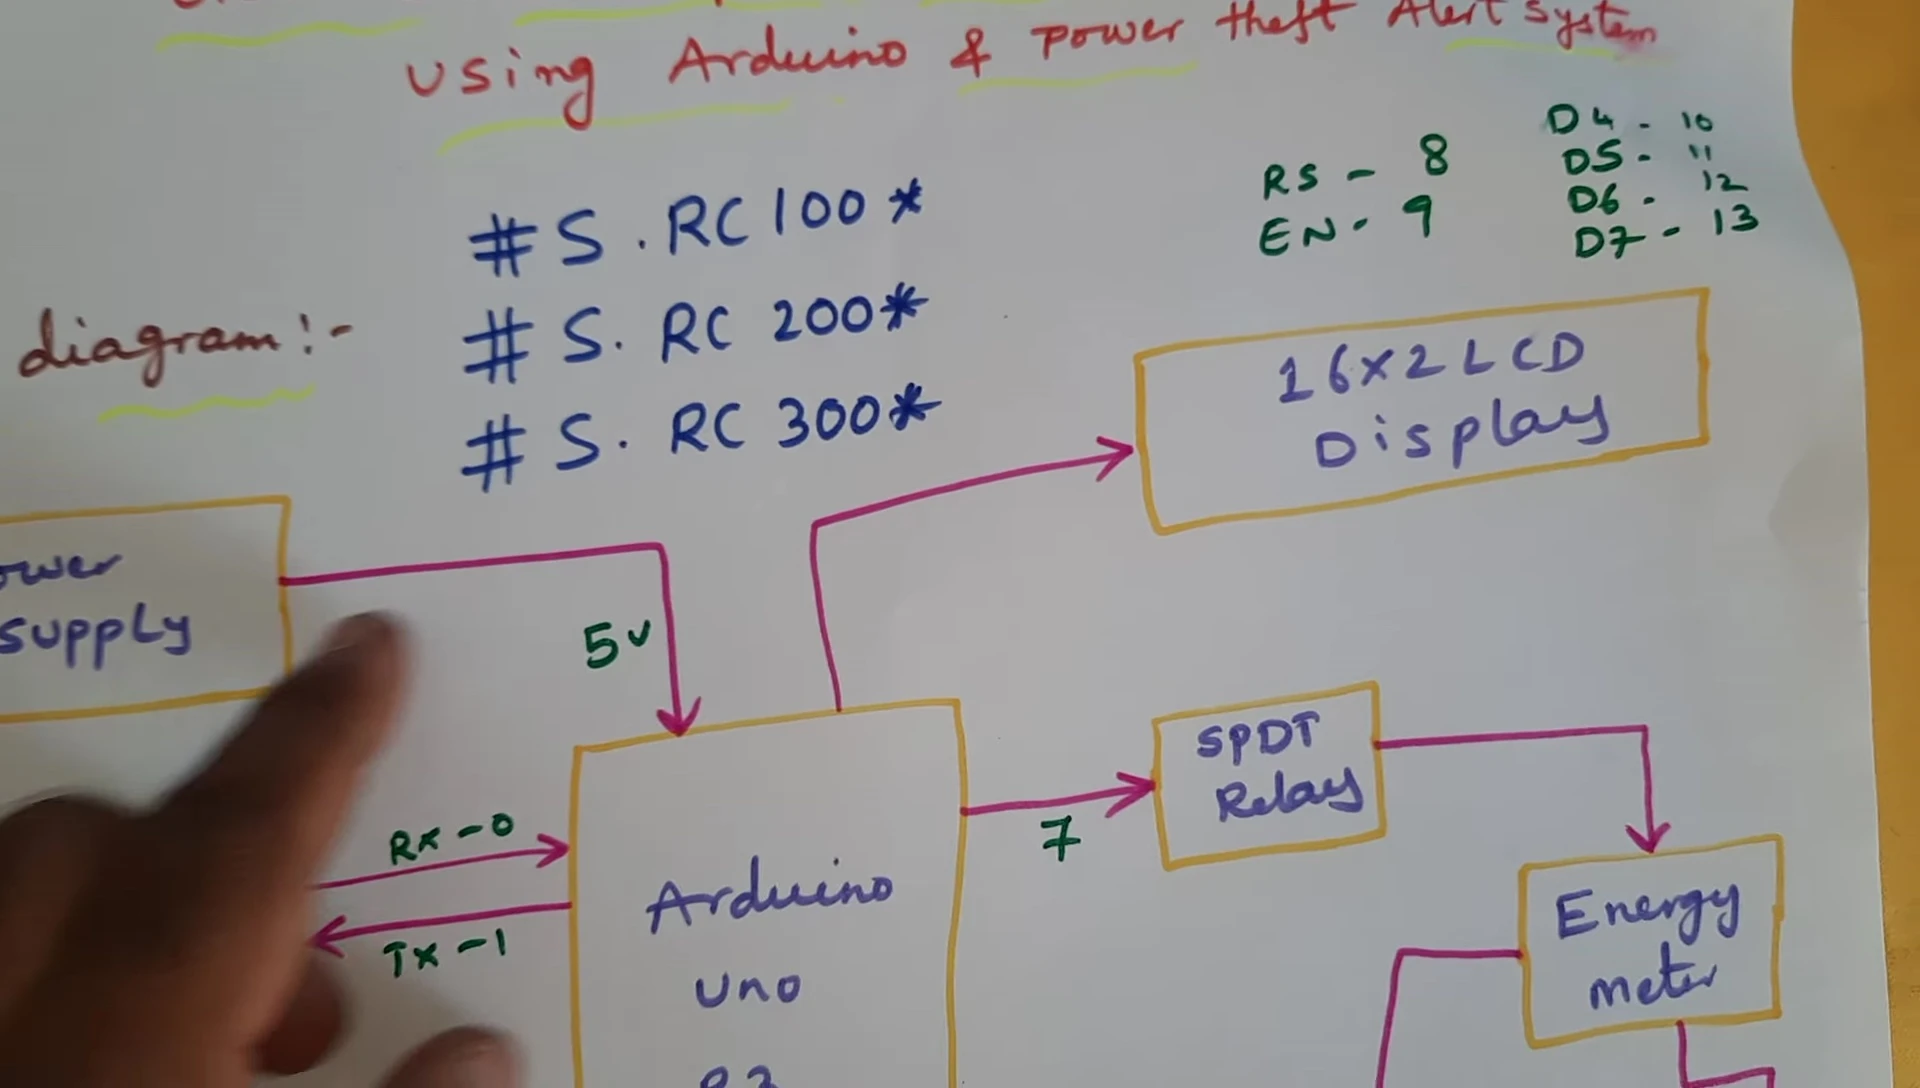 using Arduino & power theft Alert system
RS - 8
EN - 9
D4 - 10
D5 - 11
D6 - 12
D7 - 13
#S.RC100*
#S.RC 200*
#S.RC 300*
diagram:-
16x2 LCD
Display
supply
5v
SPDT
Relay
7
Rx-0
Tx-1
Arduino
uno
Energy
meter